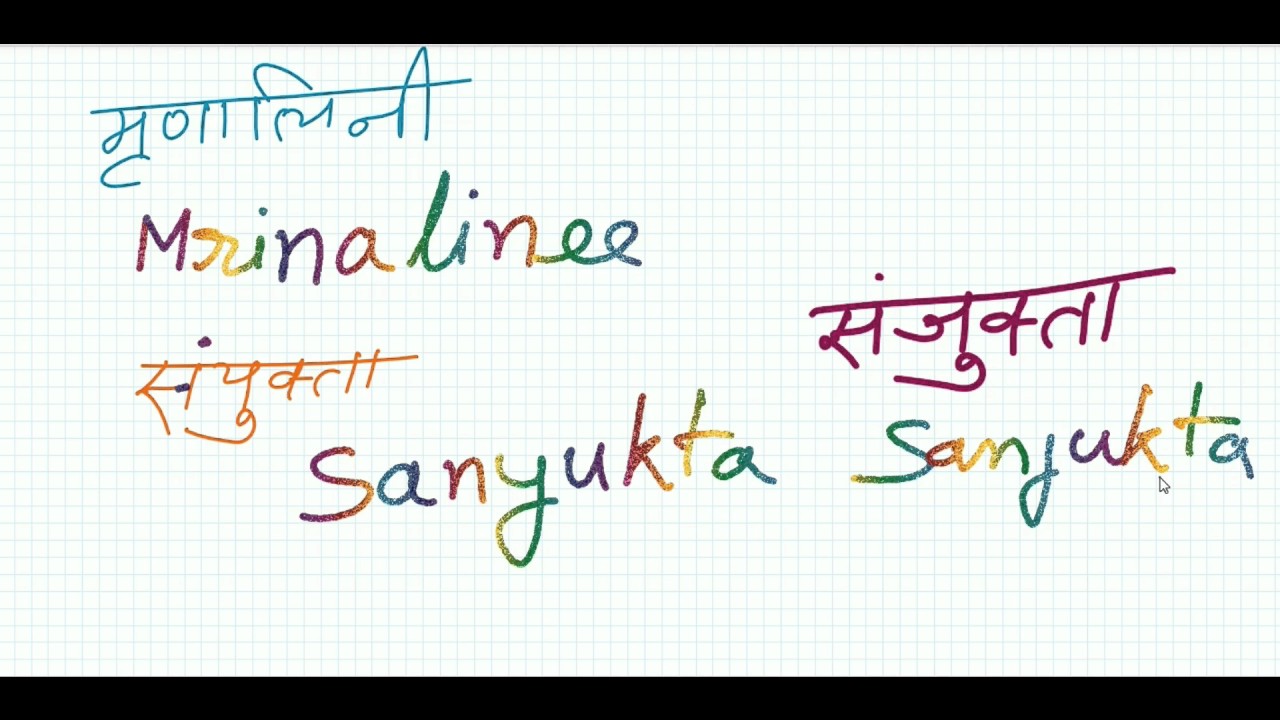 मृणालिनी
Mrinalinee
संयुक्ता
Sanyukta
संजुक्ता
Sanjukta